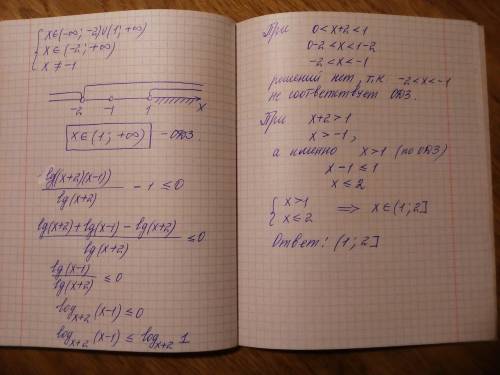 { x∈(-∞; -2)∪(1; +∞)
x∈(-2; +∞)
x ≠ -1
-2 -1 1 x
x∈(1; +∞) - ОДЗ.
lg((x+2)(x-1)) / lg(x+2) - 1 ≤ 0
(lg(x+2) + lg(x-1) - lg(x+2)) / lg(x+2) ≤ 0
lg(x-1) / lg(x+2) ≤ 0
log_{x+2} (x-1) ≤ 0
log_{x+2} (x-1) ≤ log_{x+2} 1
При 0 < x+2 < 1
0-2 < x < 1-2
-2 < x < -1
решений нет, т.к -2 < x < -1
не соответствует ОДЗ.
При x+2 > 1
x > -1,
а именно x > 1 (по ОДЗ)
x-1 ≤ 1
x ≤ 2
{ x > 1
x ≤ 2 ⟹ x∈(1; 2]
Ответ: (1; 2]